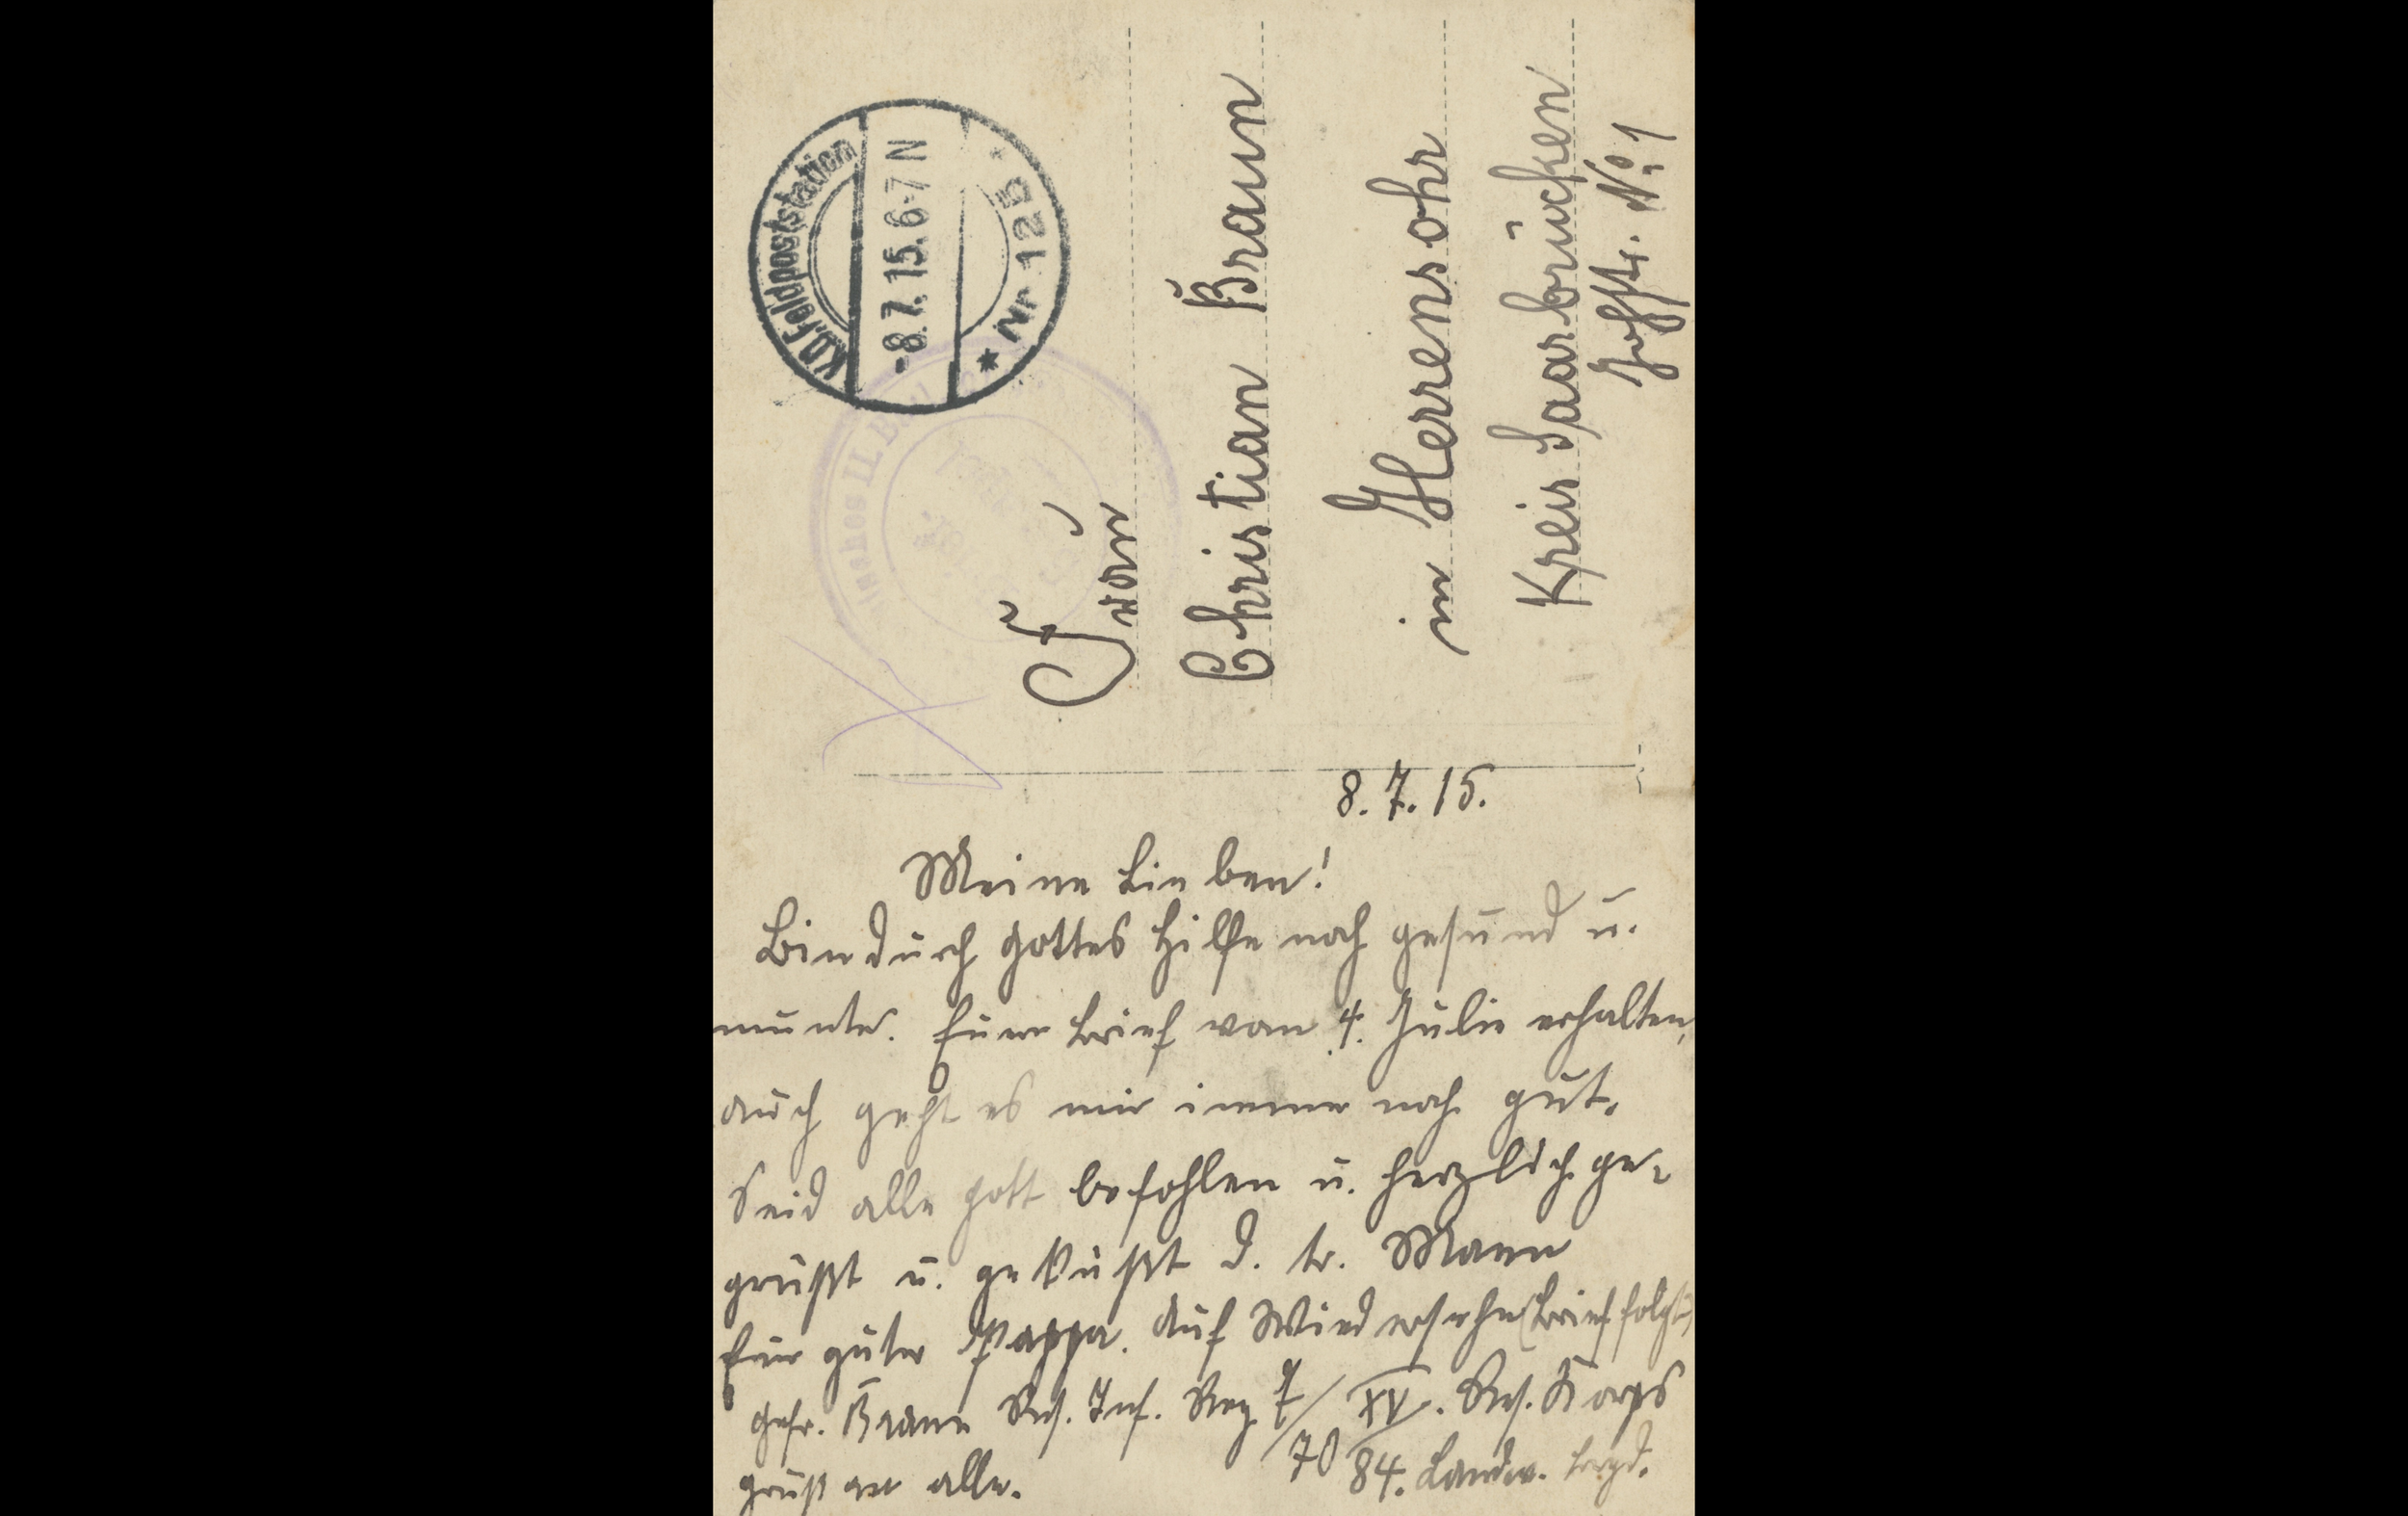 K.D. Feldpoststation
-8.7.15. 6-7 N
* Nr 125 *
Frau
Christian Braun
in Herrensohr
Kreis Saarbrücken
Hofstr. № 1
8. 7. 15.
Meine Lieben!
Bin durch Gottes Hilfe noch gesund u.
munter. Euer Brief vom 4. Julie erhalten,
auch geht es mir immer noch gut.
Seid alle Gott befohlen u. herzlich ge-
grüßt u. geküßt d. tr. Mann
Euer guter Pappa. Auf Wiedersehn (Brief folgt)
Gefr. Braun Res. Inf. Reg 7/70 XV. Res. Korps
84. Landw. Brgd.
Gruß an alle.